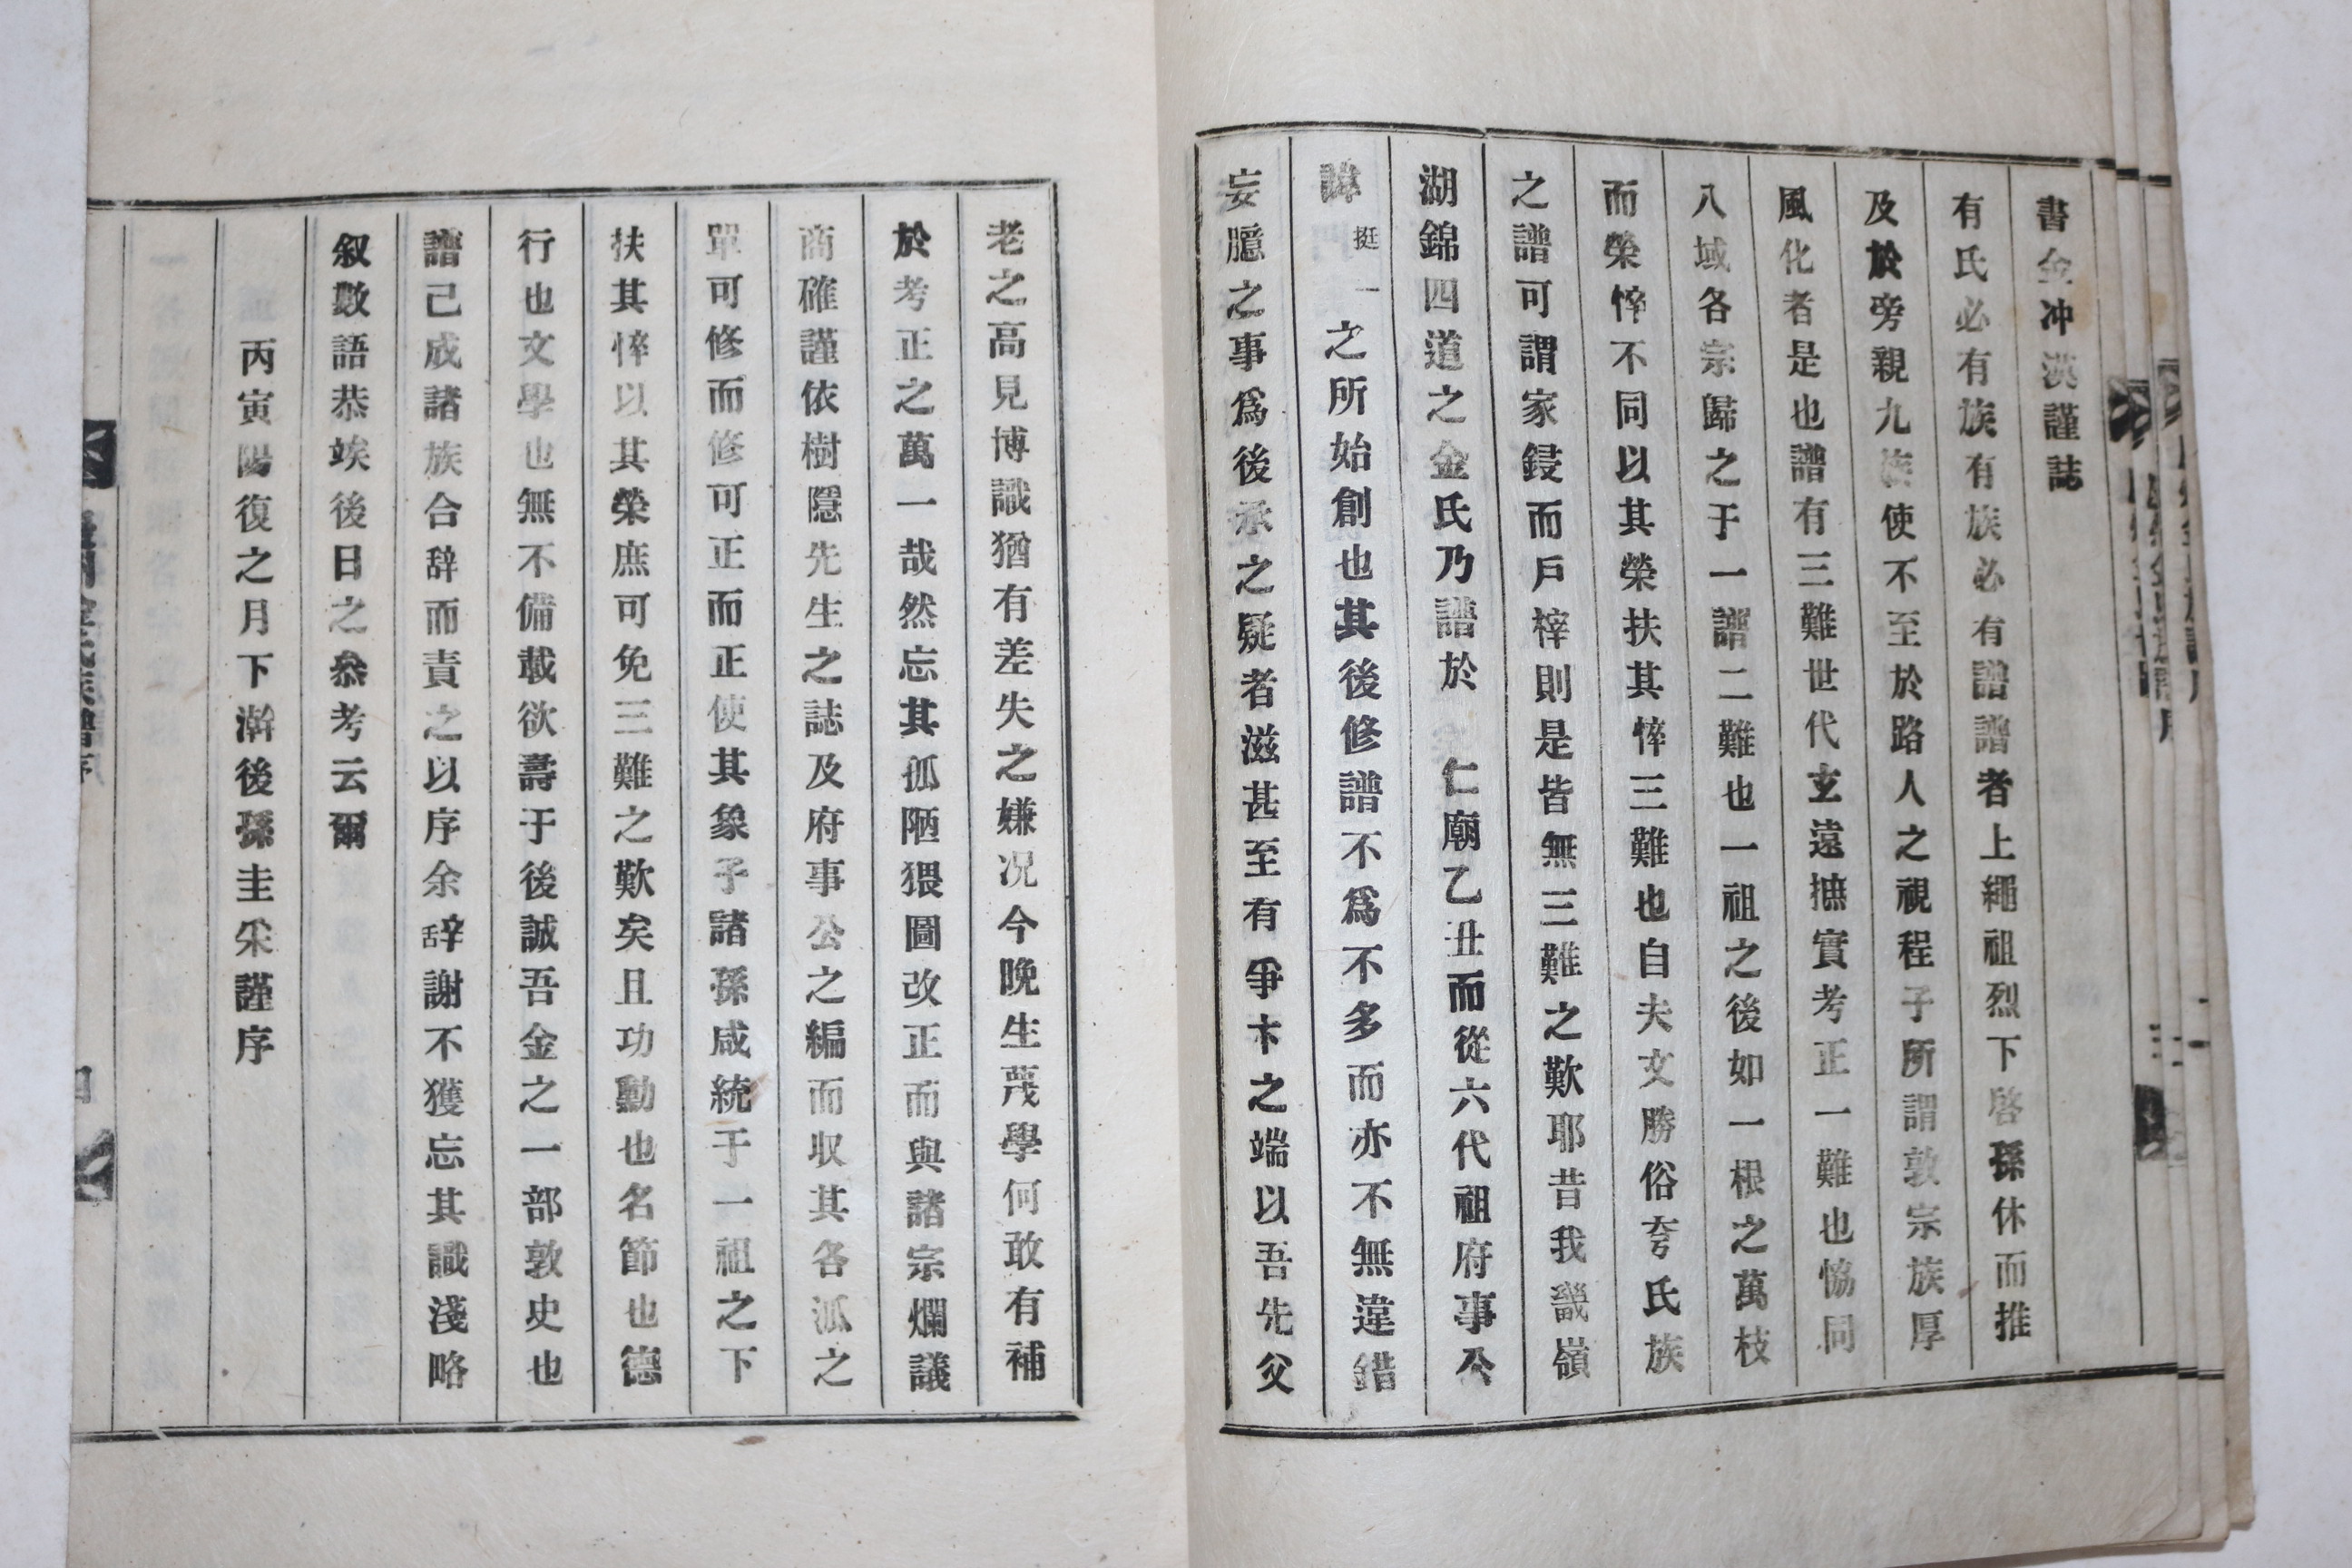 書金冲洪謹誌
有氏必有族有族必有譜譜者上繩祖烈下啓孫休而推
及於旁親九族使不至於路人之視程子所謂敦宗族厚
風化者是也譜有三難世代玄遠摭實考正一難也恊同
八域各宗歸之于一譜二難也一祖之後如一根之萬枝
而榮悴不同以其榮扶其悴三難也自夫文勝俗夸氏族
之譜可謂家鋟而戶梓則是皆無三難之歎耶昔我畿嶺
湖錦四道之金氏乃譜於 仁廟乙丑而從六代祖府事公
諱挺一之所始創也其後修譜不爲不多而亦不無違錯
妄臆之事爲後承之疑者滋甚至有爭卞之端以吾先父
老之高見博識猶有差失之嫌况今晩生蔑學何敢有補
於考正之萬一哉然忘其孤陋猥圖改正而與諸宗爛議
商確謹依樹隱先生之誌及府事公之編而収其各派之
單可修而修可正而正使其象予諸孫咸統于一祖之下
扶其悴以其榮庶可免三難之歎矣且功勳也名節也德
行也文學也無不備載欲壽于後誠吾金之一部敦史也
譜己成諸族合辞而責之以序余辞謝不獲忘其識淺略
叙數語恭竢後日之叅考云爾
丙寅陽復之月下澣後孫圭寀謹序
金氏族譜序
四